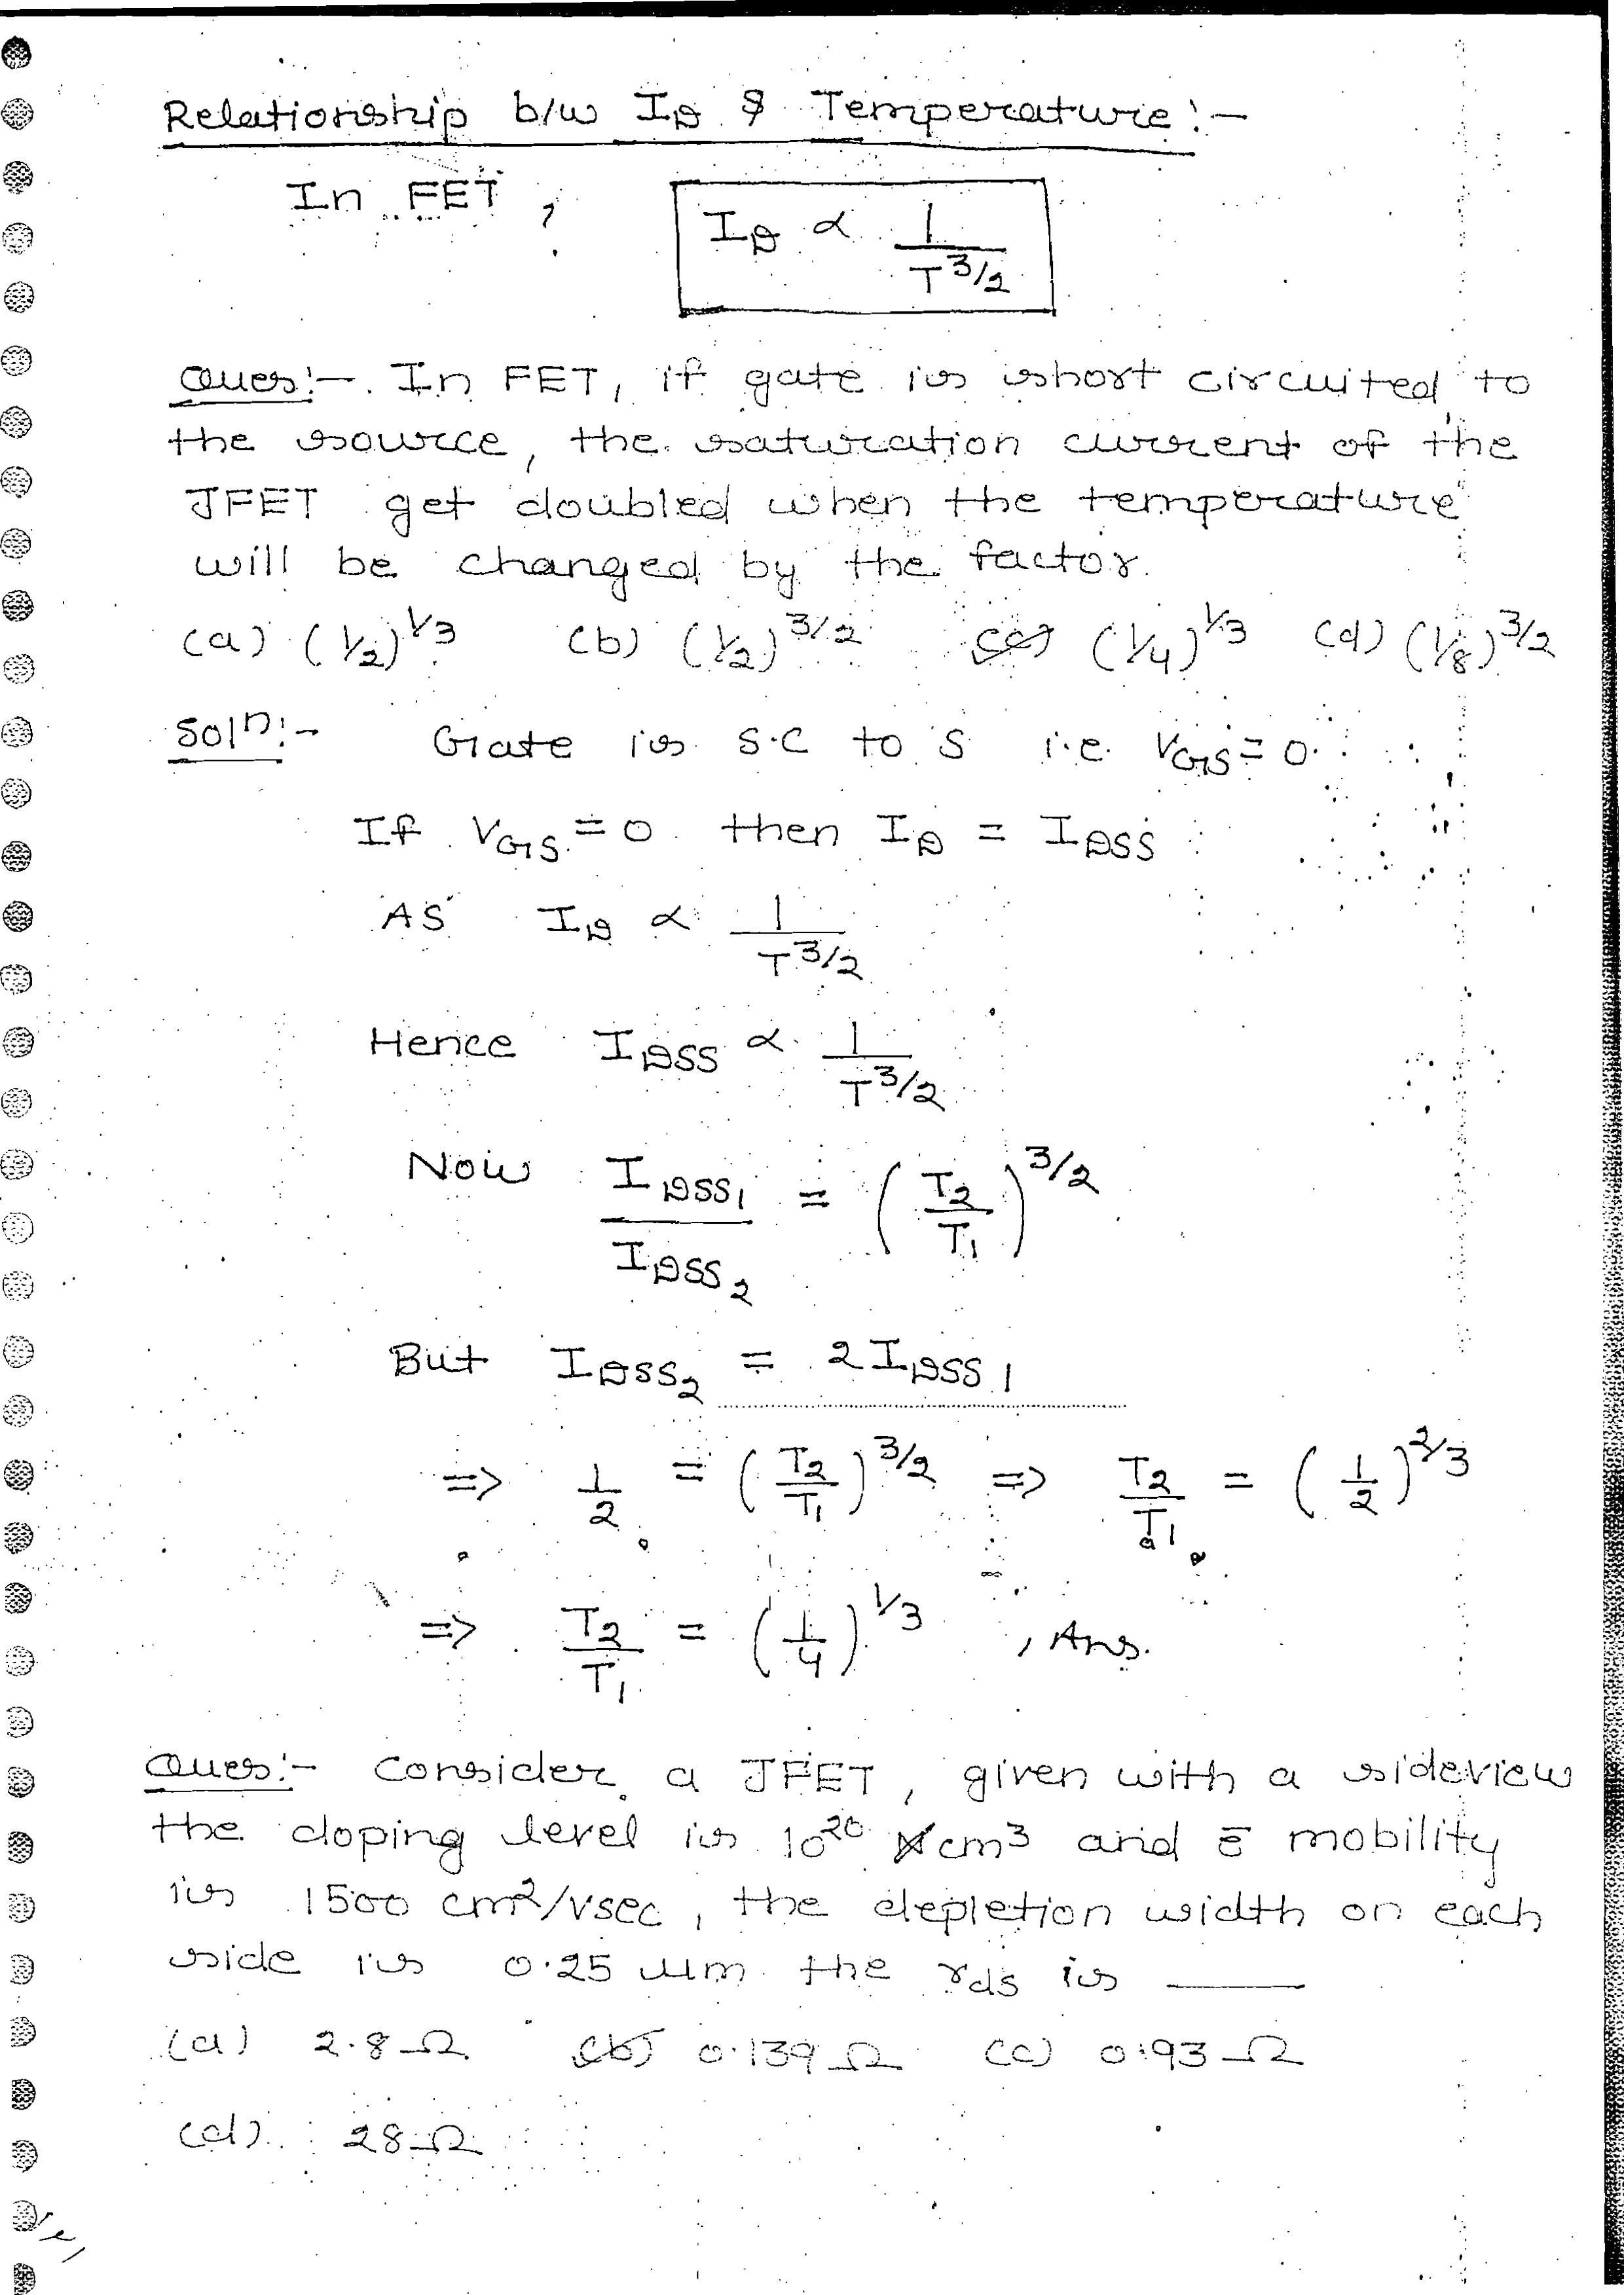 Relationship b/w I_D & Temperature:-
In FET, I_D ∝ 1/T^3/2
Ques:- In FET, if gate is short circuited to
the source, the saturation current of the
JFET get doubled when the temperature
will be changed by the factor.
(a) (1/2)^1/3 (b) (1/2)^3/2 (c) (1/4)^1/3 (d) (1/8)^3/2
Soln:- Gate is S.C to S i.e. V_GS = 0
If V_GS = 0 then I_D = I_DSS
AS I_D ∝ 1/T^3/2
Hence I_DSS ∝ 1/T^3/2
Now I_DSS1/I_DSS2 = (T2/T1)^3/2
But I_DSS2 = 2I_DSS1
=> 1/2 = (T2/T1)^3/2 => T2/T1 = (1/2)^2/3
=> T2/T1 = (1/4)^1/3, Ans.
Ques:- Consider a JFET, given with a sideview
the doping level is 10^20 /cm^3 and ē mobility
is 1500 cm^2/vsec, the depletion width on each
side is 0.25 μm the rds is ___
(a) 2.8 Ω (b) 0.139 Ω (c) 0.93 Ω
(d) 28 Ω